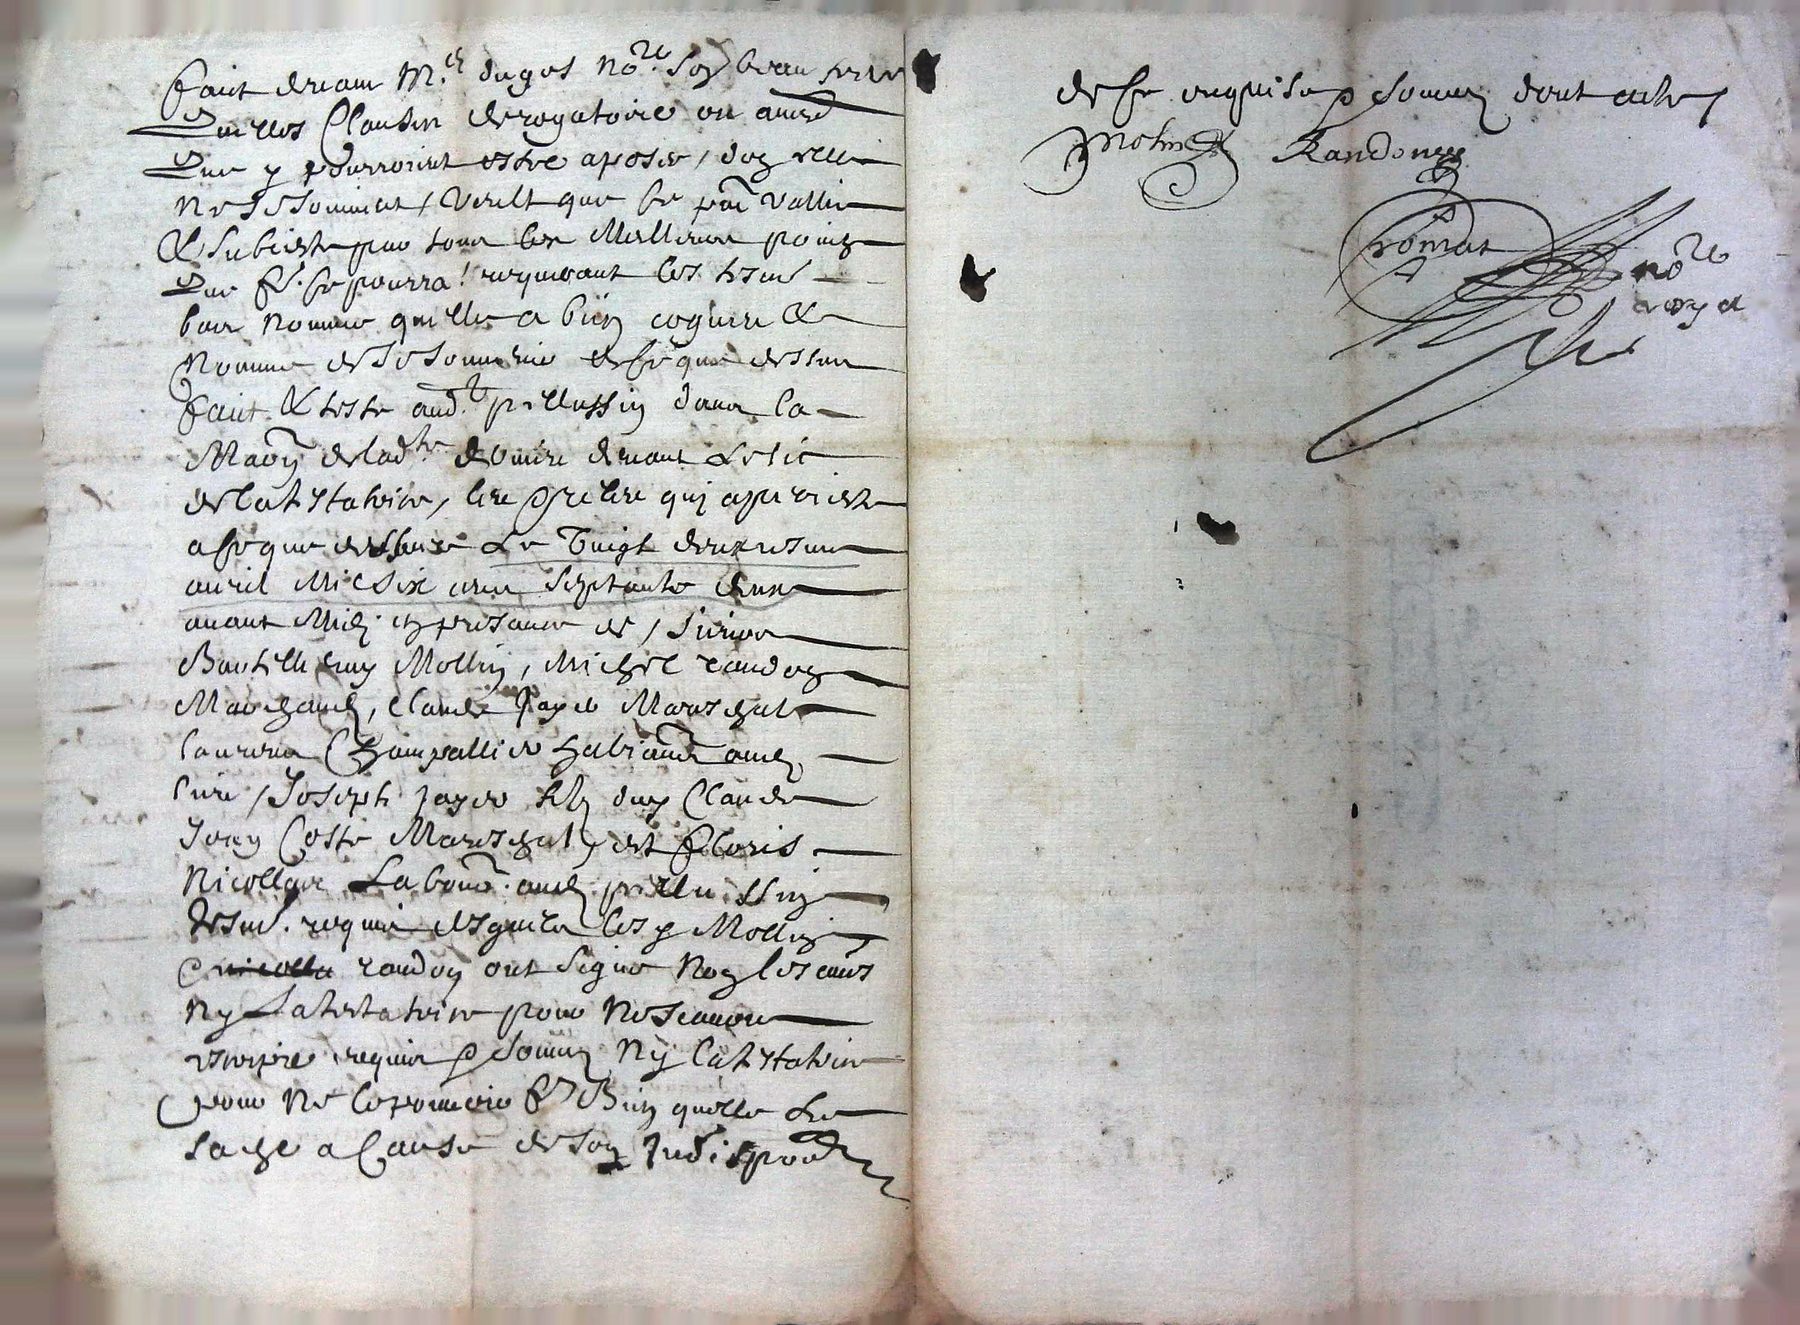 faict devant M.e duges no.re son beau frere
quelles clauses derogatoire ou autre
que y pourroient estre aposée, don elle
ne se souvient, veult que le p̄nt vallie
& subciste par tous les Melleurs poing
que f.e se pourra! requerant les tesm.
bas nommes quelle a bien cogneu &
nommes de se souvenir de ce que dessus
faict & teste aud. pellussin dans la
Maōn de lad. devant le lict
de la testatrice,
a ce que dessus Le vingt deuxiesme
avril Mil six cens septante deux
avant Midi en presance de, sieurs
Barthellemy Mollin, Michel randon
Marchand, Claude Jayer Mareschal
laurens Champallier habitant aud.
lieu, Joseph Jayer filz duy Claude
Jean Coste Mareschal, et floris
Nicollas Labour. aud. pellussin
tesm. requis desquels les y Mollin
randon ont signe non les aūes
ny La testatrice pour ne scavoir
escripre requis & somme Ny la testatrice
pour ne le pouvoir f.e Bien quelle le
sache a Cause de son Indispōn
de ce enquise & sommee dont acte
Molin Randon
Cromat no.re
royal